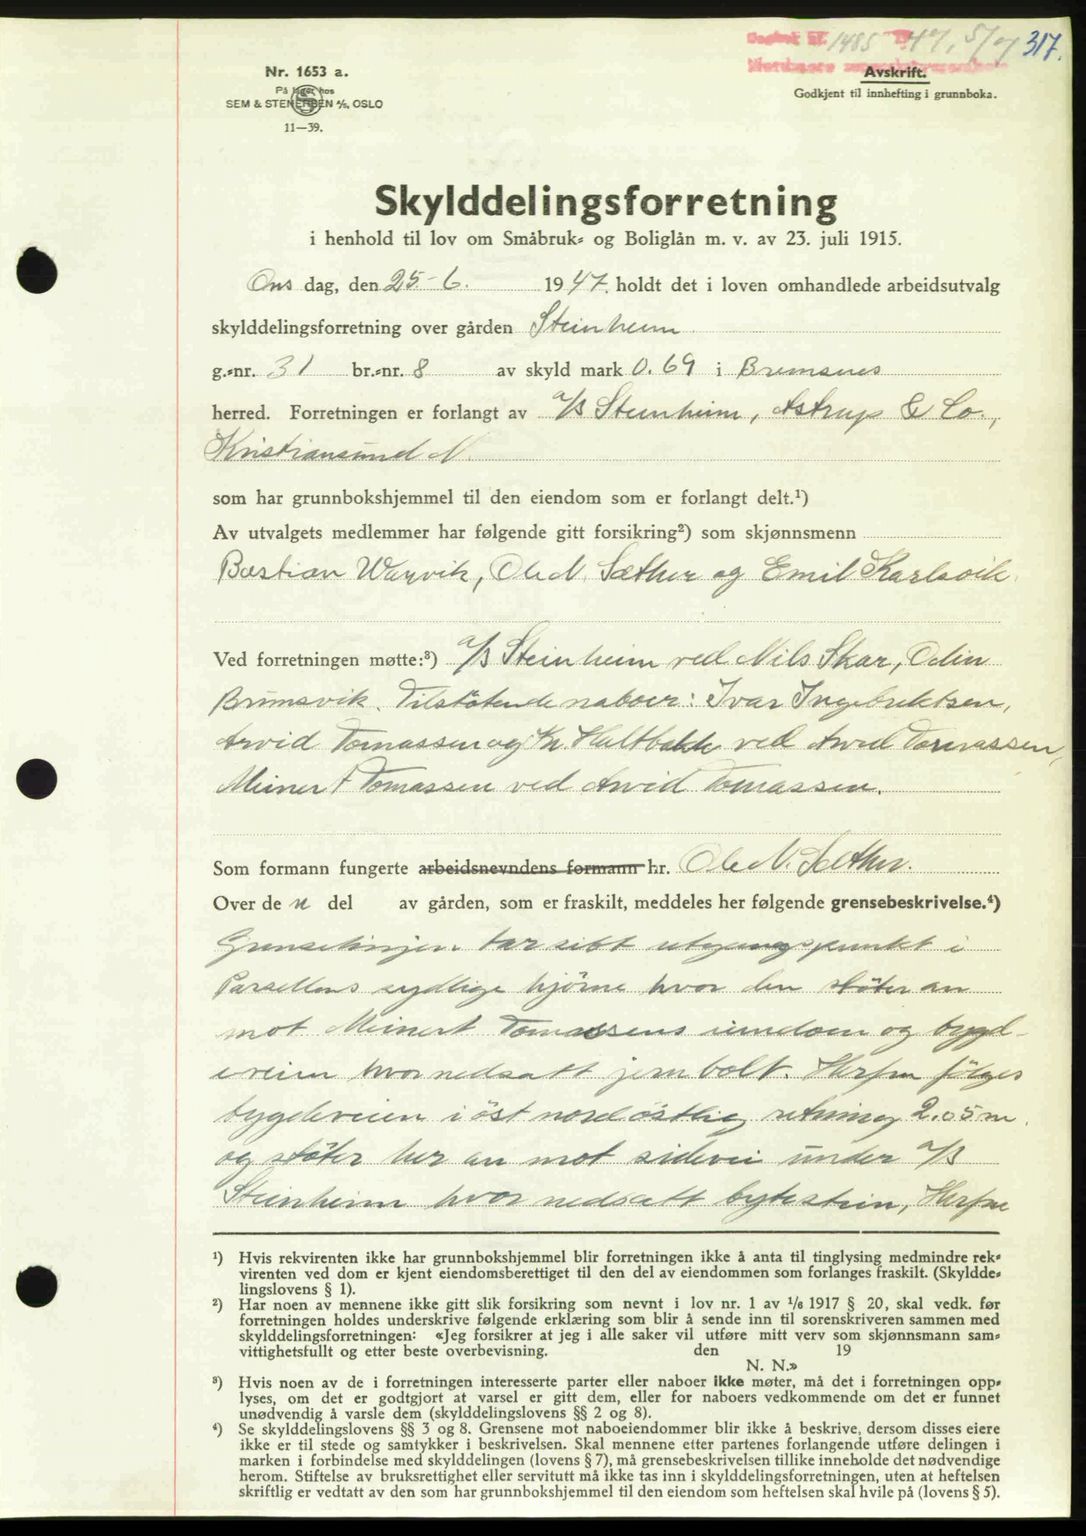 Dagbok nr. 1485 1947, 5/7 317.
Nordmøre sorenskriverembete
Nr. 1653 a.
Avskrift.
På lager hos
Godkjent til innhefting i grunnboka.
SEM & STENERSEN A/S, OSLO
11—39.
Skylddelingsforretning
i henhold til lov om Småbruk- og Boliglån m. v. av 23. juli 1915.
Ons dag, den 25-6. 1947. holdt det i loven omhandlede arbeidsutvalg
skylddelingsforretning over gården Steinheim
g.-nr. 31 br.-nr. 8 av skyld mark 0.69 i Bremsnes
herred. Forretningen er forlangt av a/s Steinheim, Astrup & Co.,
Kristiansund N.
som har grunnbokshjemmel til den eiendom som er forlangt delt.¹)
Av utvalgets medlemmer har følgende gitt forsikring²) som skjønnsmenn
Bastian Warvik, Ole N. Sæther og Emil Karlsvik.
Ved forretningen møtte:³) a/s Steinheim ved Nils Skar, Odin
Brunsvik. Tilstøtende naboer: Ivar Ingebriktsen,
Arvid Tomassen og Kr. Haltbakk ved Arvid Tomassen,
Meinert Tomassen ved Arvid Tomassen.
Som formann fungerte arbeidsnevndens formann hr. Ole N. Sæther.
Over de n del av gården, som er fraskilt, meddeles her følgende grensebeskrivelse.⁴)
Grenselinjen tar sitt utgangspunkt i
Parsellens sydlige hjörne hvor den stöter an
mot Meinert Tomassens eiendom og bygd-
eveien hvor nedsatt jernbolt. Herfra fölges
bygdeveien i öst nordöstlig retning 2.05 m.
og stöter her an mot sidevei under a/s
Steinheim hvor nedsatt bytestein, Herfra
¹) Hvis rekvirenten ikke har grunnbokshjemmel blir forretningen ikke å anta til tinglysing medmindre rek-
virenten ved dom er kjent eiendomsberettiget til den del av eiendommen som forlanges fraskilt. (Skyldde-
lingslovens § 1).
²) Har noen av mennene ikke gitt slik forsikring som nevnt i lov nr. 1 av 1/6 1917 § 20, skal vedk. før
forretningen holdes underskrive følgende erklæring som blir å sende inn til sorenskriveren sammen med
skylddelingsforretningen: «Jeg forsikrer at jeg i alle saker vil utføre mitt verv som skjønnsmann sam-
vittighetsfullt og etter beste overbevisning. den 19
N. N.»
³) Hvis noen av de i forretningen interesserte parter eller naboer ikke møter, må det i forretningen opp-
lyses, om det er godtgjort at varsel er gitt dem, eller for naboers vedkommende om det er funnet
unødvendig å varsle dem (skylddelingslovens §§ 2 og 8).
⁴) Se skylddelingslovens §§ 3 og 8. Grensene mot naboeiendommer blir ikke å beskrive, dersom disses eiere
ikke er til stede og samtykker i beskrivelsen. Skal mennene etter partenes forlangende utføre delingen i
marken i forbindelse med skylddelingen (lovens § 7), må grensebeskrivelsen tillike inneholde det nødvendige
herom. Stiftelse av bruksrettighet eller servitutt må ikke tas inn i skylddelingsforretningen, uten at heftelsen
skriftlig er vedtatt av den som har grunnbokshjemmel til den eiendom som heftelsen skal hvile på (lovens § 5).